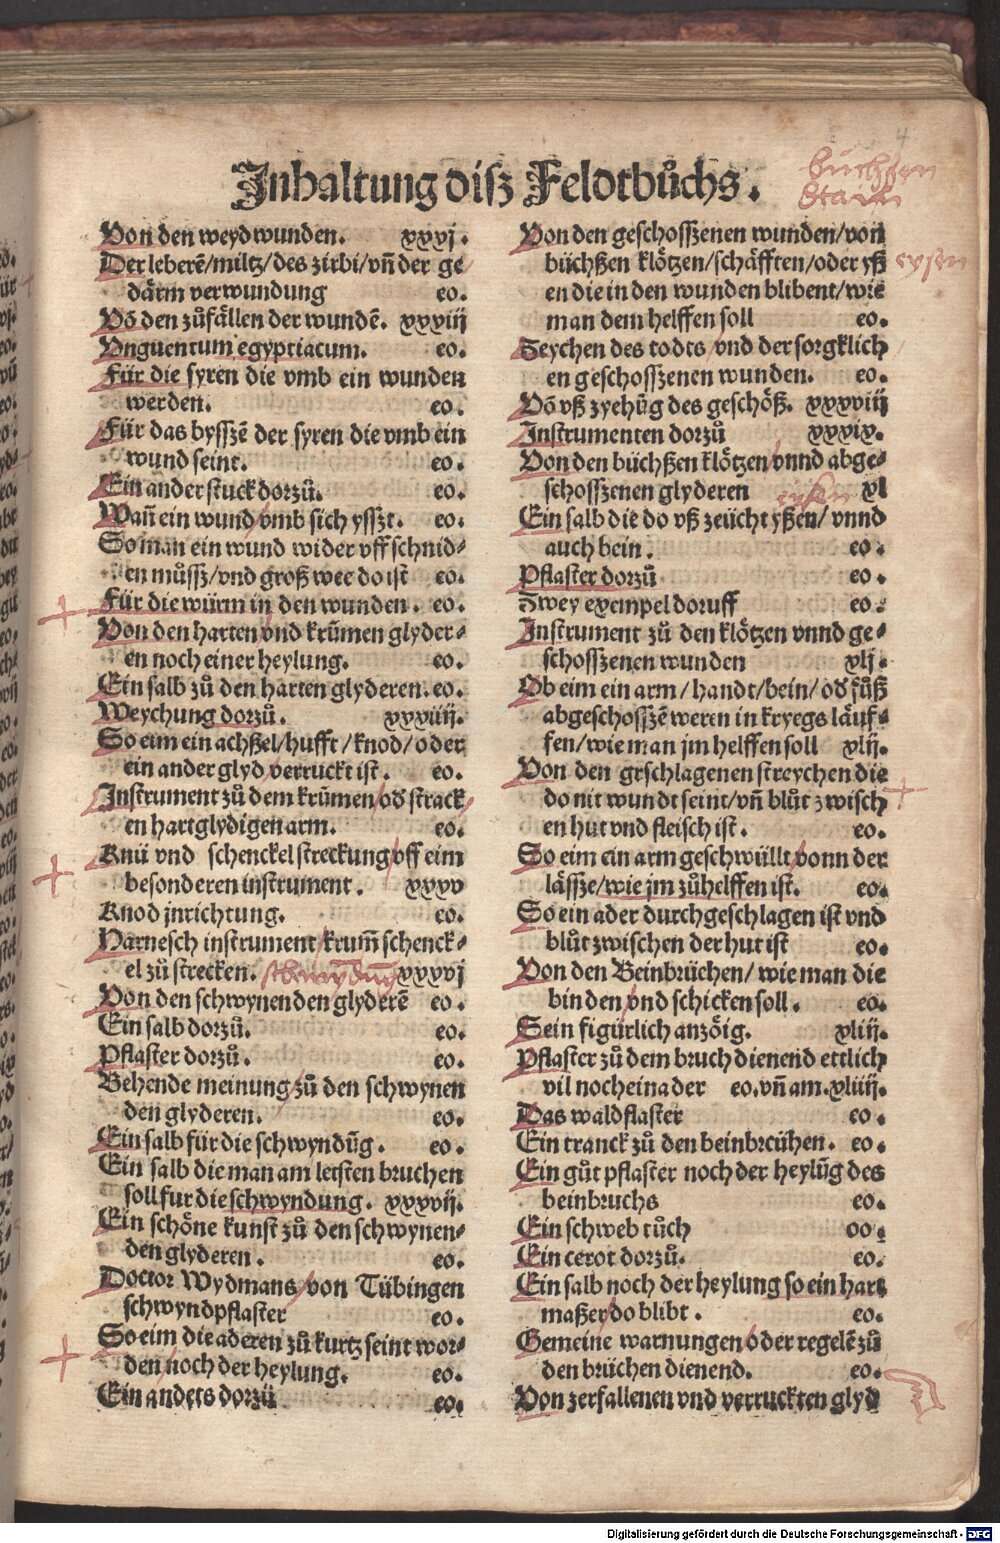 4
Inhaltung disz Feldtbůchs.
büchssen
stain
Von den weydwunden. xxxj.
Der leberẽ/miltz/des zirbi/vñ der ge
därm verwundung eo.
Võ den zůfällen der wundẽ. xxxiij
Vnguentum egyptiacum. eo.
Für die syren die vmb ein wunden
werden. eo.
Für das bysszẽ der syren die vmb ein
wund seint. eo.
Ein ander stuck dorzů. eo.
Wañ ein wund vmb sich ysszt. eo.
So man ein wund wider vff schnid⸗
en můssz/vnd groß wee do ist eo.
Für die würm in den wunden. eo.
Von den harten vnd krũmen glyder⸗
en noch einer heylung. eo.
Ein salb zů den harten glyderen. eo.
Weychung dorzů. xxxiiij.
So eim ein achßel/hufft/knod/oder
ein ander glyd verruckt ist. eo.
Instrument zů dem krũmen/od strack
en hartglydigen arm. eo.
Knü vnd schenckel streckung vff eim
besonderen instrument. xxxv
Knod jnrichtung. eo.
Harnesch instrument krum̃ schenck⸗
el zů strecken. xxxvj
Von den schwynenden glyderẽ eo.
Ein salb dorzů. eo.
Pflaster dorzů. eo.
Behende meinung zů den schwynen
den glyderen. eo.
Ein salb für die schwyndũg. eo.
Ein salb die man am letsten bruchen
soll fur die schwyndung. xxxvij.
Ein schöne kunst zů den schwynen⸗
den glyderen. eo.
Doctor Wydmans von Tübingen
schwyndpflaster eo.
So eim die aderen zů kurtz seint wor⸗
den noch der heylung. eo.
Ein anders dorzü eo.
Von den geschosszenen wunden/von
büchßen klötzen/schäfften/oder yß
eysen
en die in den wunden blibent/wie
man dem helffen soll eo.
Zeychen des todts vnd der sorgklich
en geschosszenen wunden. eo.
Võ vß zyehũg des geschöß. xxxviij
Instrumenten dorzů xxxix.
Von den büchßen klötzen vnnd abge⸗
schosszenen glyderen xl
Ein salb die do vß zeücht yßen/ vnnd
auch bein. eo.
Pflaster dorzů eo.
Zwey exempel doruff eo.
Instrument zů den klötzen vnnd ge⸗
schosszenen wunden xlj.
Ob eim ein arm/handt/bein/od fůß
abgeschosszẽ weren in kryegs läuf⸗
fen/wie man jm helffen soll xlij.
Von den grschlagenen streychen die
do nit wundt seint/vñ blůt zwisch
en hut vnd fleisch ist. eo.
So eim ein arm geschwüllt vonn der
lässze/wie jm zůhelffen ist. eo.
So ein ader durchgeschlagen ist vnd
blůt zwischen der hut ist eo.
Von den Beinbrüchen/ wie man die
binden vnd schicken soll. eo.
Sein figürlich anzöig. xliij.
Pflaster zů dem bruch dienend ettlich
vil noch einader eo.vñ am.xliiij.
Das waldflaster eo.
Ein tranck zů den beinbrcühen. eo.
Ein gůt pflaster noch der heylũg des
beinbruchs eo.
Ein schweb tůch oo.
Ein cerot dorzů. eo.
Ein salb noch der heylung so ein hart
maßer do blibt. eo.
Gemeine warnungen oder regelẽ zů
den brüchen dienend. eo.
Von zerfallenen vnd verruckten glyd
Digitalisierung gefördert durch die Deutsche Forschungsgemeinschaft - DFG